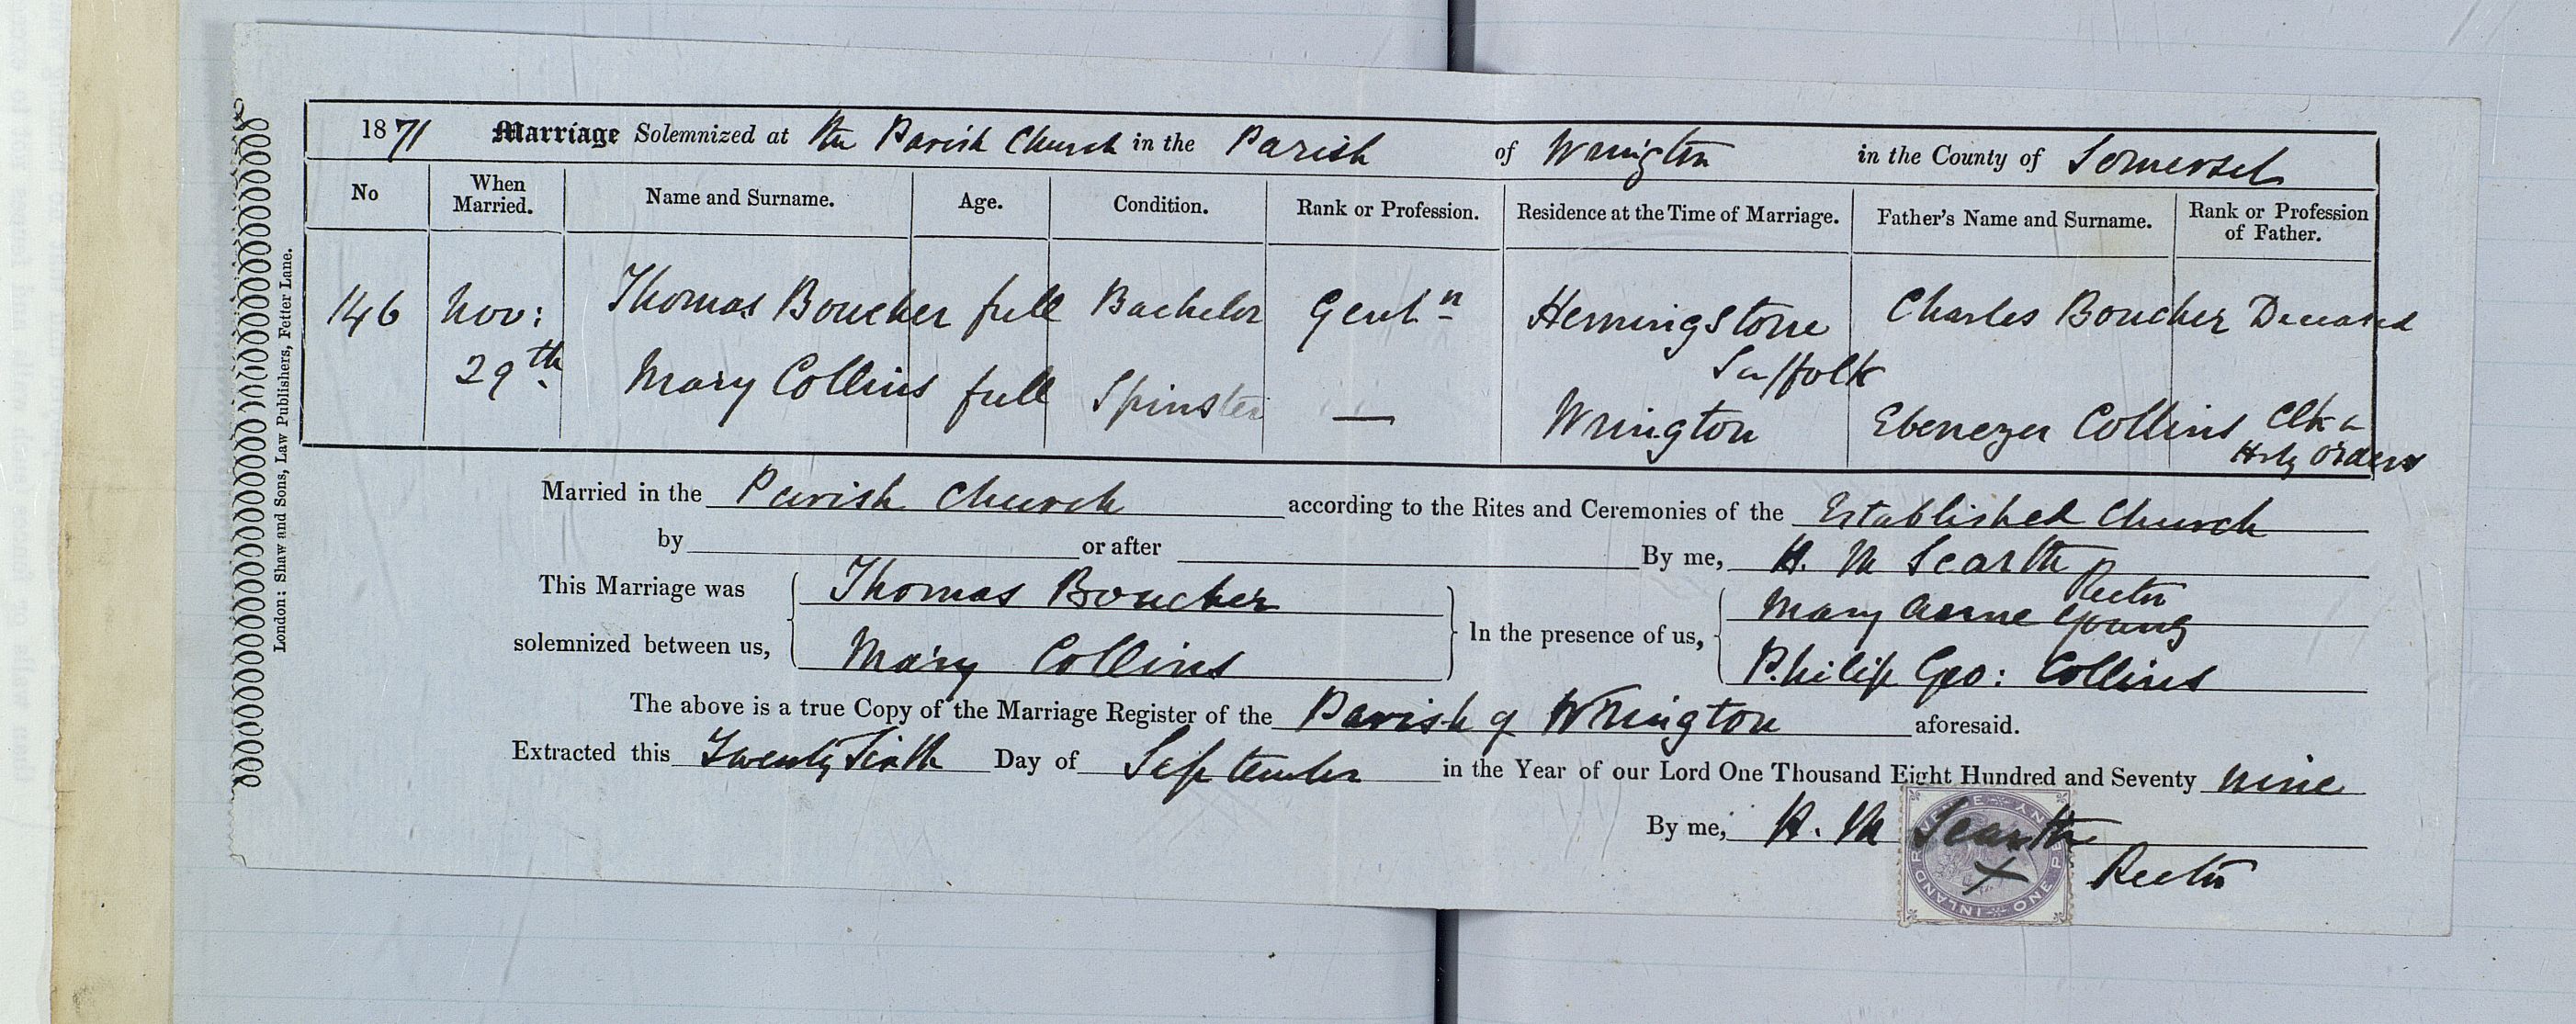 1871 Marriage Solemnized at the Parish Church in the Parish of Wrington in the County of Somerset
No When Married. Name and Surname. Age. Condition. Rank or Profession. Residence at the Time of Marriage. Father's Name and Surname. Rank or Profession of Father.
146 Nov: 29th Thomas Boucher full Bachelor Gentn Hemingstone Suffolk Charles Boucher Deceased
Mary Collins full Spinster — Wrington Ebenezer Collins Clk in Holy Orders
Married in the Parish Church according to the Rites and Ceremonies of the Established Church
by or after By me, H. M Scarth Rector
This Marriage was solemnized between us, Thomas Boucher Mary Collins In the presence of us, Mary Anne Young Philip Geo: Collins
The above is a true Copy of the Marriage Register of the Parish of Wrington aforesaid.
Extracted this Twenty Sixth Day of September in the Year of our Lord One Thousand Eight Hundred and Seventy nine
By me, H. M Scarth Rector
INLAND REVENUE ONE PENNY
London: Shaw and Sons, Law Publishers, Fetter Lane.